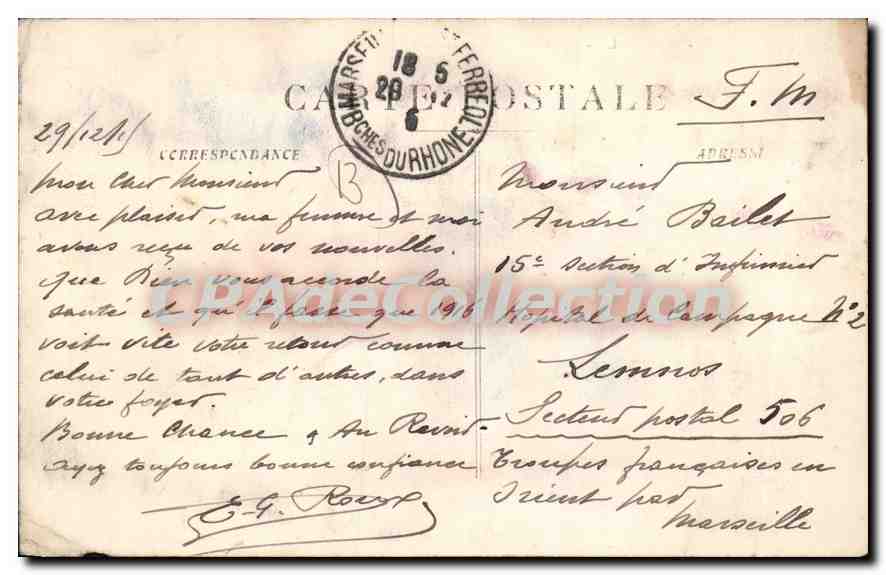 CARTE POSTALE
F.M
MARSEILLE FERRÉOL
18 5
29 12
6
BCHES DU RHONE
29/12/15
CORRESPONDANCE
ADRESSE
B
Mon Cher Monsieur
avec plaisir, ma femme et moi
avons reçu de vos nouvelles.
Que Dieu vous accorde la
santé et qu'il fasse que 1916
voit vite votre retour comme
celui de tant d'autres, dans
votre foyer.
Bonne Chance & Au Revoir.
ayez toujours bonne confiance
E-G. Roux
Monsieur
André Bailet
15e Section d'Infirmier
Hopital de Campagne N°2
Lemnos
Secteur postal 506
Troupes françaises en
Orient par
Marseille
CPAdeCollection.com